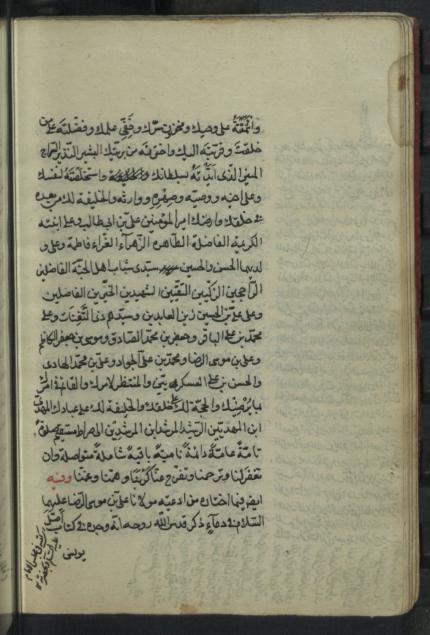 وائتمنته على وحيك ومخزن سرك وخفي علمك وفضلته على من
خلقت وقربته اليك واخترته من بريتك البشير النذير السراج
المنير الذي ايدته بسلطانك واستخلصته لنفسك
وعلى اخيه ووصيه وصهره ووارثه والخليفة لك من بعده
في خلقك وارضك امير المؤمنين علي بن ابي طالب وعلى ابنته
الكريمة الفاضلة الطاهرة الزهراء الغراء فاطمة وعلى و
لديها الحسن والحسين سيدي شباب اهل الجنة الفاضلين
الراجحين الزكيين التقيين الشهيدين الخيرين الفاضلين
وعلى علي بن الحسين زين العابدين وسيدهم ذي الثفنات وعلى
محمد بن علي الباقر وجعفر بن محمد الصادق وموسى بن جعفر الكاظم
وعلي بن موسى الرضا ومحمد بن علي الجواد وعلي بن محمد الهادي
والحسن بن علي العسكري والمنتظر لامرك والقائم في ارضك
بما يرضيك والحجة لك على خلقك والخليفة لك على عبادك المهدي
ابن المهديين الرشيد المرشد ابن المرشدين الى صراط مستقيم صلوة
تامة عامة دائمة نامية باقية شاملة متواصلة وان
تغفر لنا وترحمنا وتفرج عنا كربنا وهمنا وغمنا ومنه
ايضا فيما اختاره من ادعية مولانا علي بن موسى الرضا عليهما
السلام في دعاء ذكر قدس الله روحه انه وجده في كتاب اصل
يونس